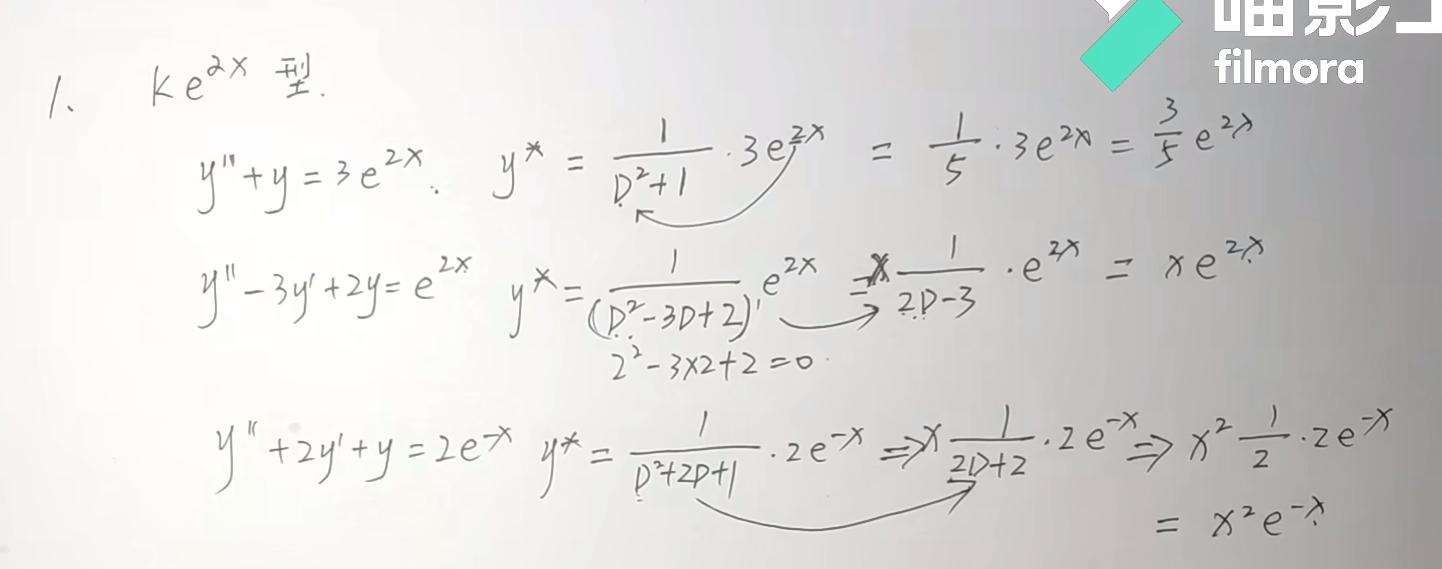 喵影工
filmora
1. ke^{2x} 型.
y''+y=3e^{2x}. y* = \frac{1}{D²+1} · 3e^{2x} = \frac{1}{5} · 3e^{2x} = \frac{3}{5} e^{2x}
y''-3y'+2y=e^{2x} y* = \frac{1}{(D²-3D+2)'} e^{2x} = x \frac{1}{2D-3} · e^{2x} = xe^{2x}
2²-3×2+2=0
y''+2y'+y=2e^{-x} y* = \frac{1}{D²+2D+1} · 2e^{-x} ⇒ x \frac{1}{2D+2} · 2e^{-x} ⇒ x² \frac{1}{2} · 2e^{-x}
= x²e^{-x}